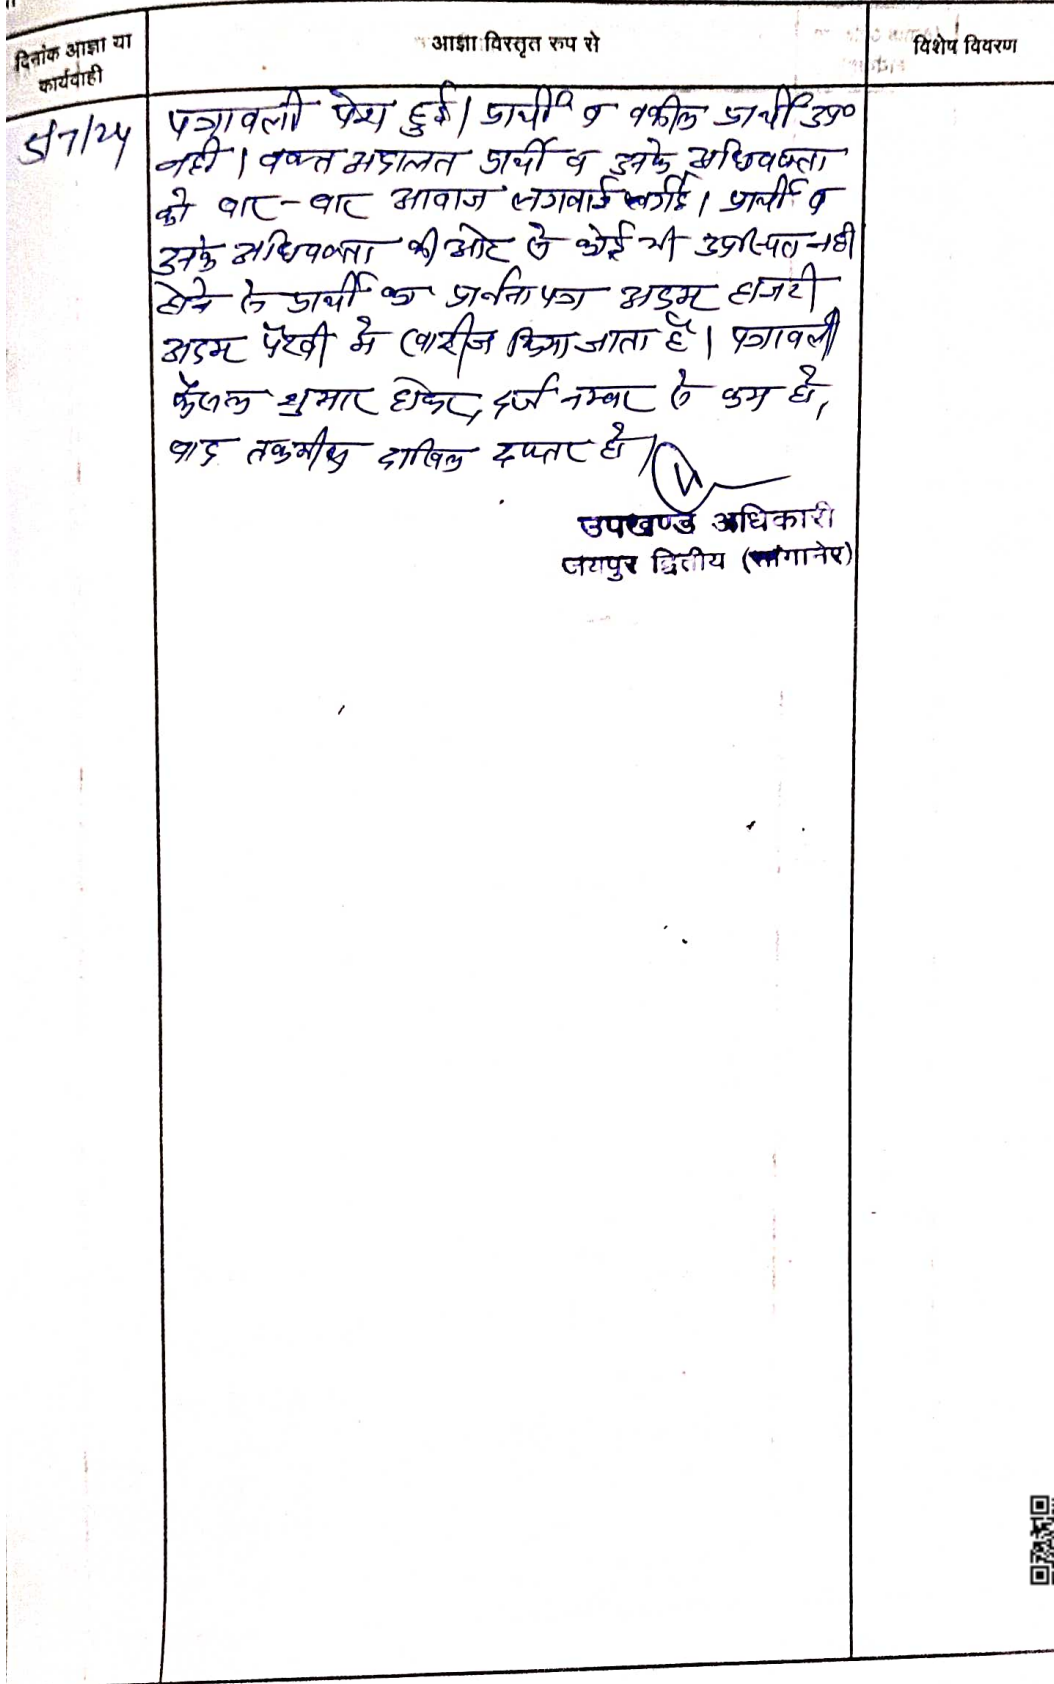 दिनांक आज्ञा या
कार्यवाही
आज्ञा विस्तृत रुप से
विशेष विवरण
5/7/24
पत्रावली पेश हुई। प्रार्थी व वकील प्रार्थी उप०
नही। वक्त अदालत प्रार्थी व उनके अधिवक्ता
को बार-बार आवाज लगवाई गई। प्रार्थी व
उनके अधिवक्ता की ओर से कोई भी उपस्थित नही
होने से प्रार्थी का प्रार्थना पत्र अदम हाजरी
अदम पैरवी मे खारीज किया जाता है। पत्रावली
फैसल शुमार होकर दर्ज नम्बर से कम हो,
बाद तकमील दाखिल दफ्तर हो।
उपखण्ड अधिकारी
जयपुर द्वितीय (सांगानेर)